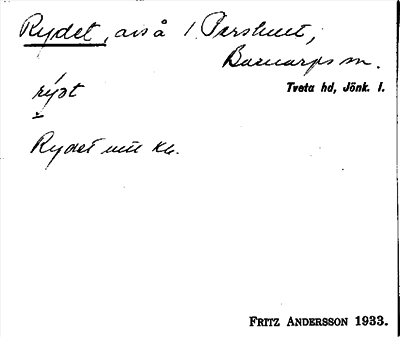 Rydet, avs å 1 Perstuet,
Barnarps sn.
Tveta hd, Jönk. l.
rýət
Rydet utt kh.
FRITZ ANDERSSON 1933.